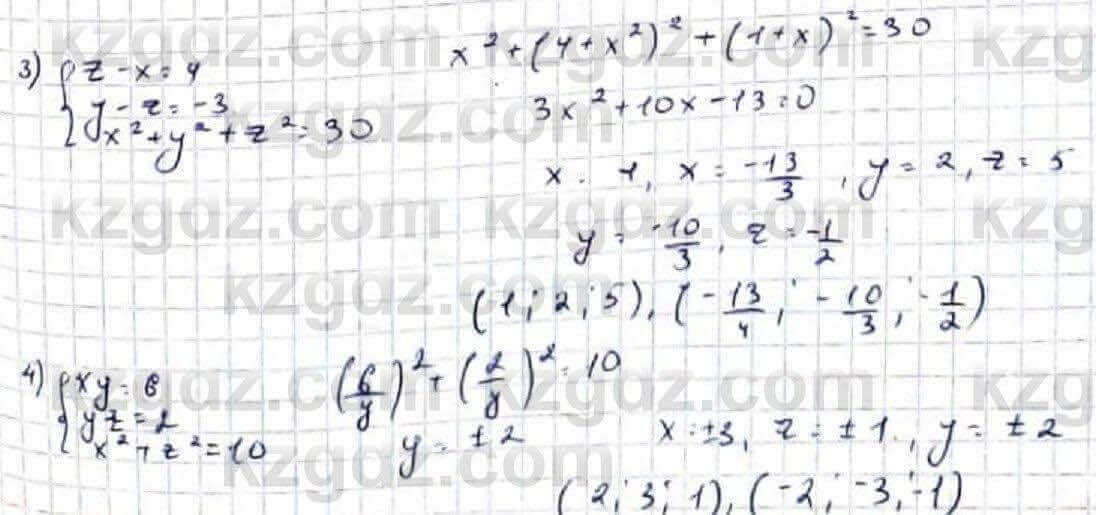 3) { z - x = 4
y - z = -3
x² + y² + z² = 30
x² + (4 + x²)² + (1 + x)² = 30
3x² + 10x - 13 = 0
x = 1, x = -13/3, y = 2, z = 5
y = -10/3, z = -1/2
(1; 2; 5), (-13/4; -10/3; -1/2)
4) { xy = 6
yz = 2
x² + z² = 10
(6/y)² + (2/y)² = 10
y = ±2
x = ±3, z = ±1, y = ±2
(2; 3; 1), (-2; -3; -1)
kzgdz.com